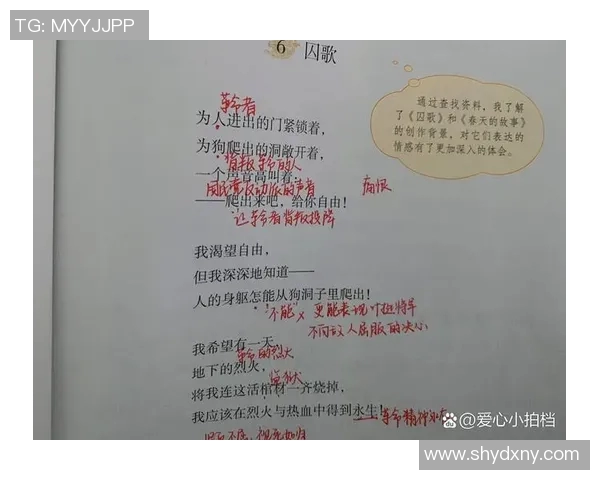 TG: MYYJJPP
6 囚歌
通过查找资料，我了解
了《囚歌》和《春天的故事》
的创作背景，对它们表达的
情感有了更加深入的体会。
革命者
为人进出的门紧锁着，
为狗爬出的洞敞开着，
背叛革命的人
一个声音高叫着：
国民党反动派的声音
痛恨
——爬出来吧，给你自由！
让革命者背叛投降
我渴望自由，
但我深深地知道——
人的身躯怎能从狗洞子里爬出！
"不能"× 更能表现叶挺将军
不向敌人屈服的决心
我希望有一天，
革命的烈火
地下的烈火，
监狱
将我连这活棺材一齐烧掉，
我应该在烈火与热血中得到永生！
革命精神永存
坚贞不屈，视死如归
@爱心小拍档
www.shydxny.com